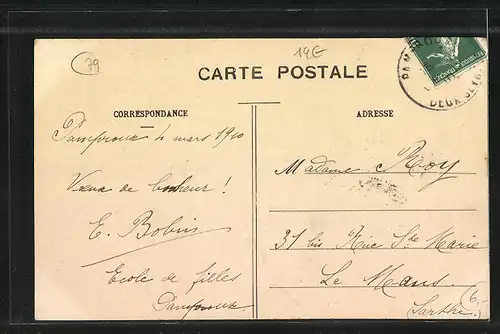 79
14E
CARTE POSTALE
CORRESPONDANCE
ADRESSE
PAM
DEUX SÈV
Pamproux 4 mars 1910
Vœux de bonheur !
E. Bobin
Ecole de filles
Pamproux
Madame Roy
31 bis Rue Ste Marie
Le Mans
(Sarthe)